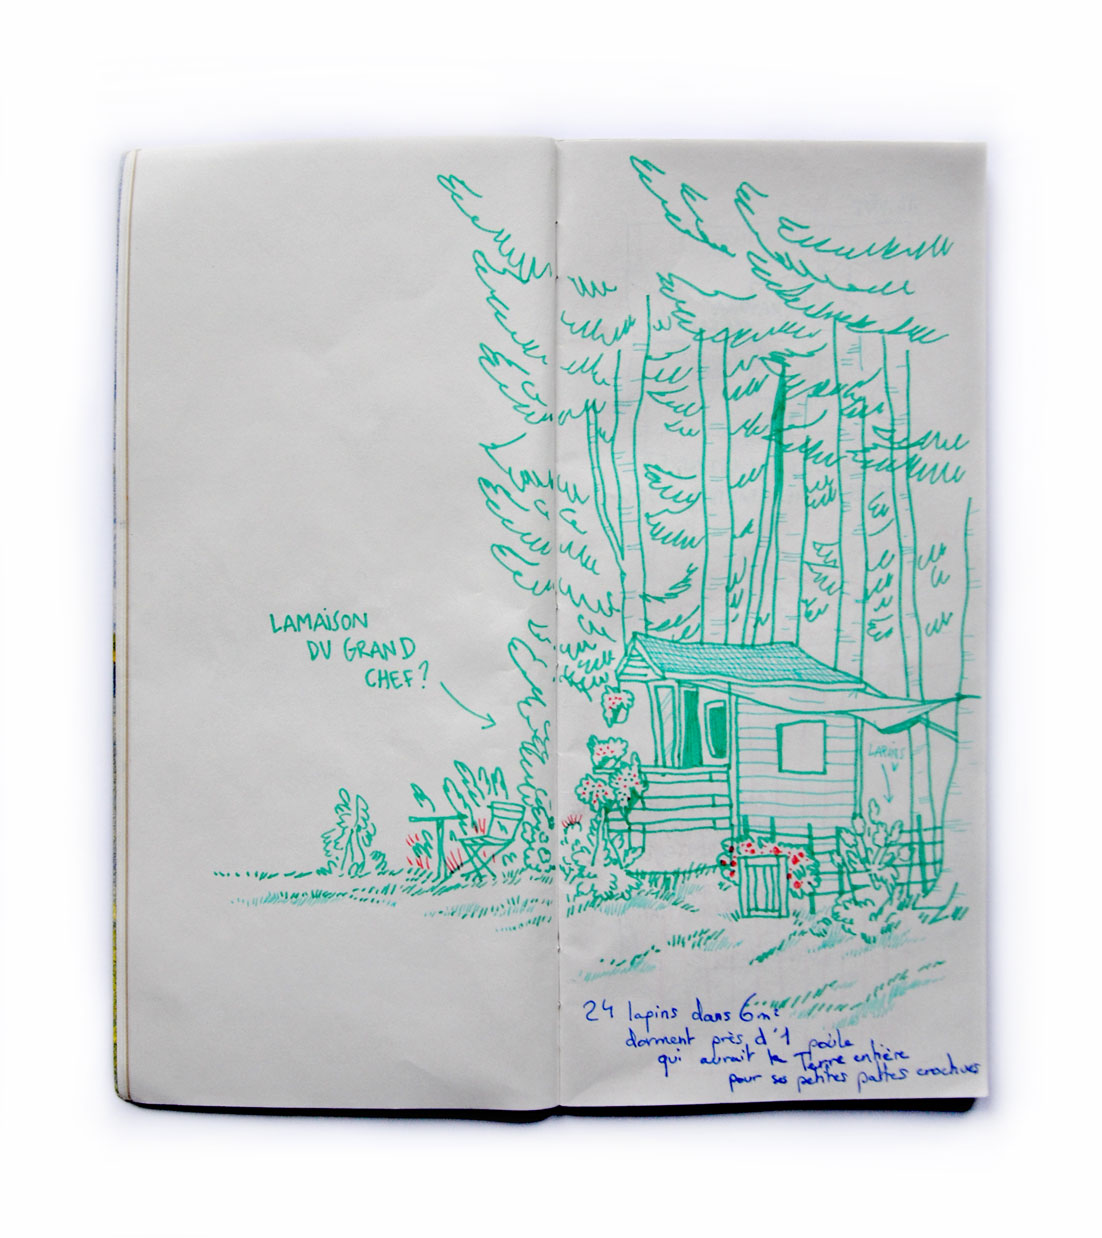 LA MAISON
DU GRAND
CHEF?
LAPINS
24 lapins dans 6m²
dorment près d'1 poule
qui aurait la Terre entière
pour ses petites pattes crochues